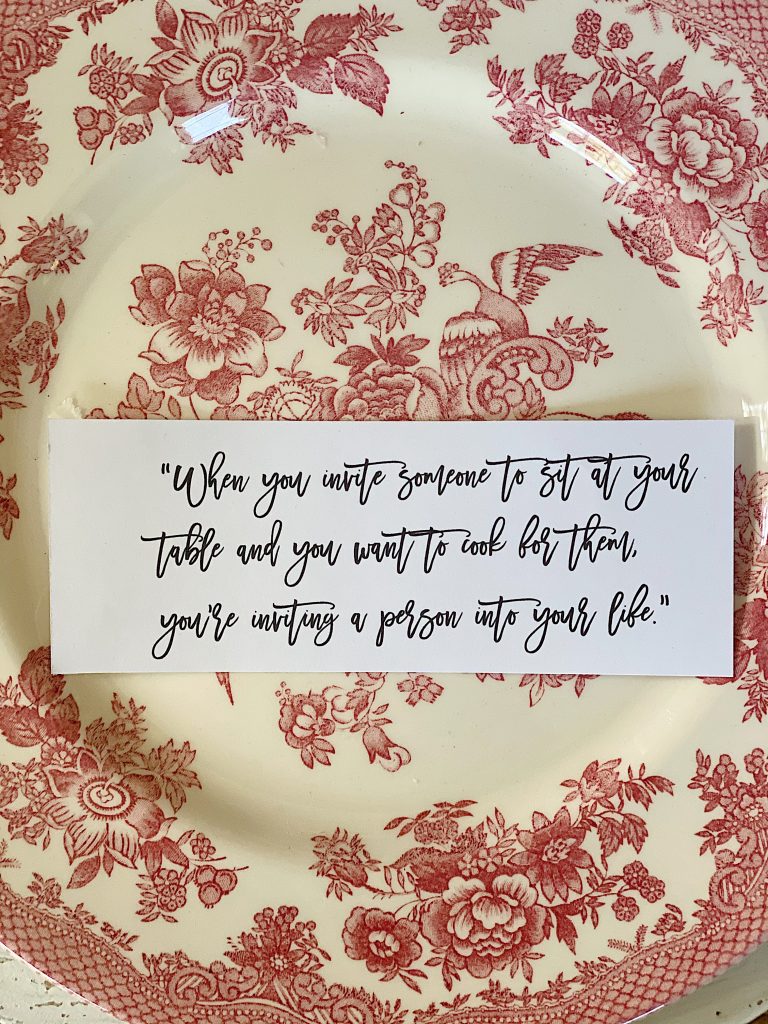 "When you invite someone to sit at your
table and you want to cook for them,
you're inviting a person into your life."